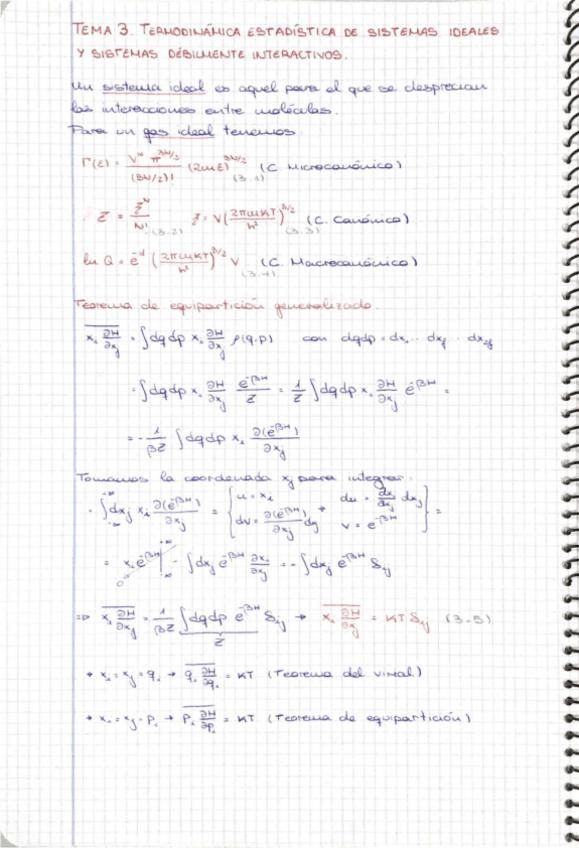 TEMA 3. TERMODINÁMICA ESTADÍSTICA DE SISTEMAS IDEALES
Y SISTEMAS DÉBILMENTE INTERACTIVOS.
Un sistema ideal es aquel para el que se desprecian
las interacciones entre moléculas.
Para un gas ideal tenemos:
Γ(E) = V^N π^{3N/2} / (3N/2)! (2mE)^{3N/2} (C. Microcanónico) (3.1)
Z = z^N / N! (3.2) z = V (2πmKT / h²)^{3/2} (C. Canónico) (3.3)
ln Q = e^{-α} (2πmKT / h²)^{3/2} V (C. Macrocanónico) (3.4)
Teorema de equipartición generalizado.
\overline{x_i ∂H/∂x_j} = ∫dqdp x_i ∂H/∂x_j ρ(q,p) con dqdp = dx_1 ... dx_j ... dx_{2f}
= ∫dqdp x_i ∂H/∂x_j e^{-βH}/Z = 1/Z ∫dqdp x_i ∂H/∂x_j e^{-βH} =
= - 1/βZ ∫dqdp x_i ∂(e^{-βH})/∂x_j
Tomamos la coordenada x_j para integrar.
· ∫_{-∞}^{+∞} dx_j x_i ∂(e^{-βH})/∂x_j = { u = x_i → du = dx_i/dx_j dx_j
dv = ∂(e^{-βH})/∂x_j dx_j v = e^{-βH} } =
= x_i e^{-βH} |_{-∞}^{+∞} 0 - ∫dx_j e^{-βH} ∂x_i/∂x_j = - ∫dx_j e^{-βH} δ_{ij}
⇒ \overline{x_i ∂H/∂x_j} = 1/βZ ∫dqdp e^{-βH} δ_{ij} → \overline{x_i ∂H/∂x_j} = KT δ_{ij} (3.5)
Z
* x_i = x_j = q_i → \overline{q_i ∂H/∂q_i} = KT (Teorema del virial)
* x_i = x_j = p_i → \overline{p_i ∂H/∂p_i} = KT (Teorema de equipartición)